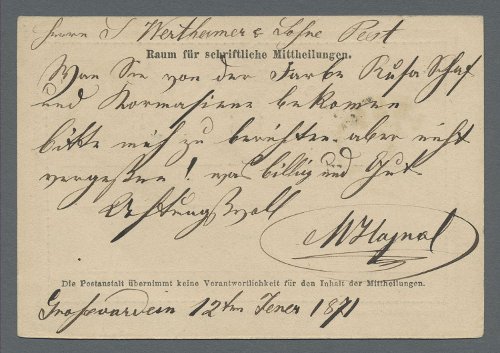 Herrn S Wertheimer & Söhne Pest
Raum für schriftliche Mittheilungen.
Wan Sie von der Farbe Rusa Schaf
und Kormasiene bekomen
bitte mich zu berichten aber nicht
vergeßen! was billig und Gut
Achtungsvoll
M Hajnal
Die Postanstalt übernimmt keine Verantwortlichkeit für den Inhalt der Mittheilungen.
Grosswardein 12ten Jener 1871